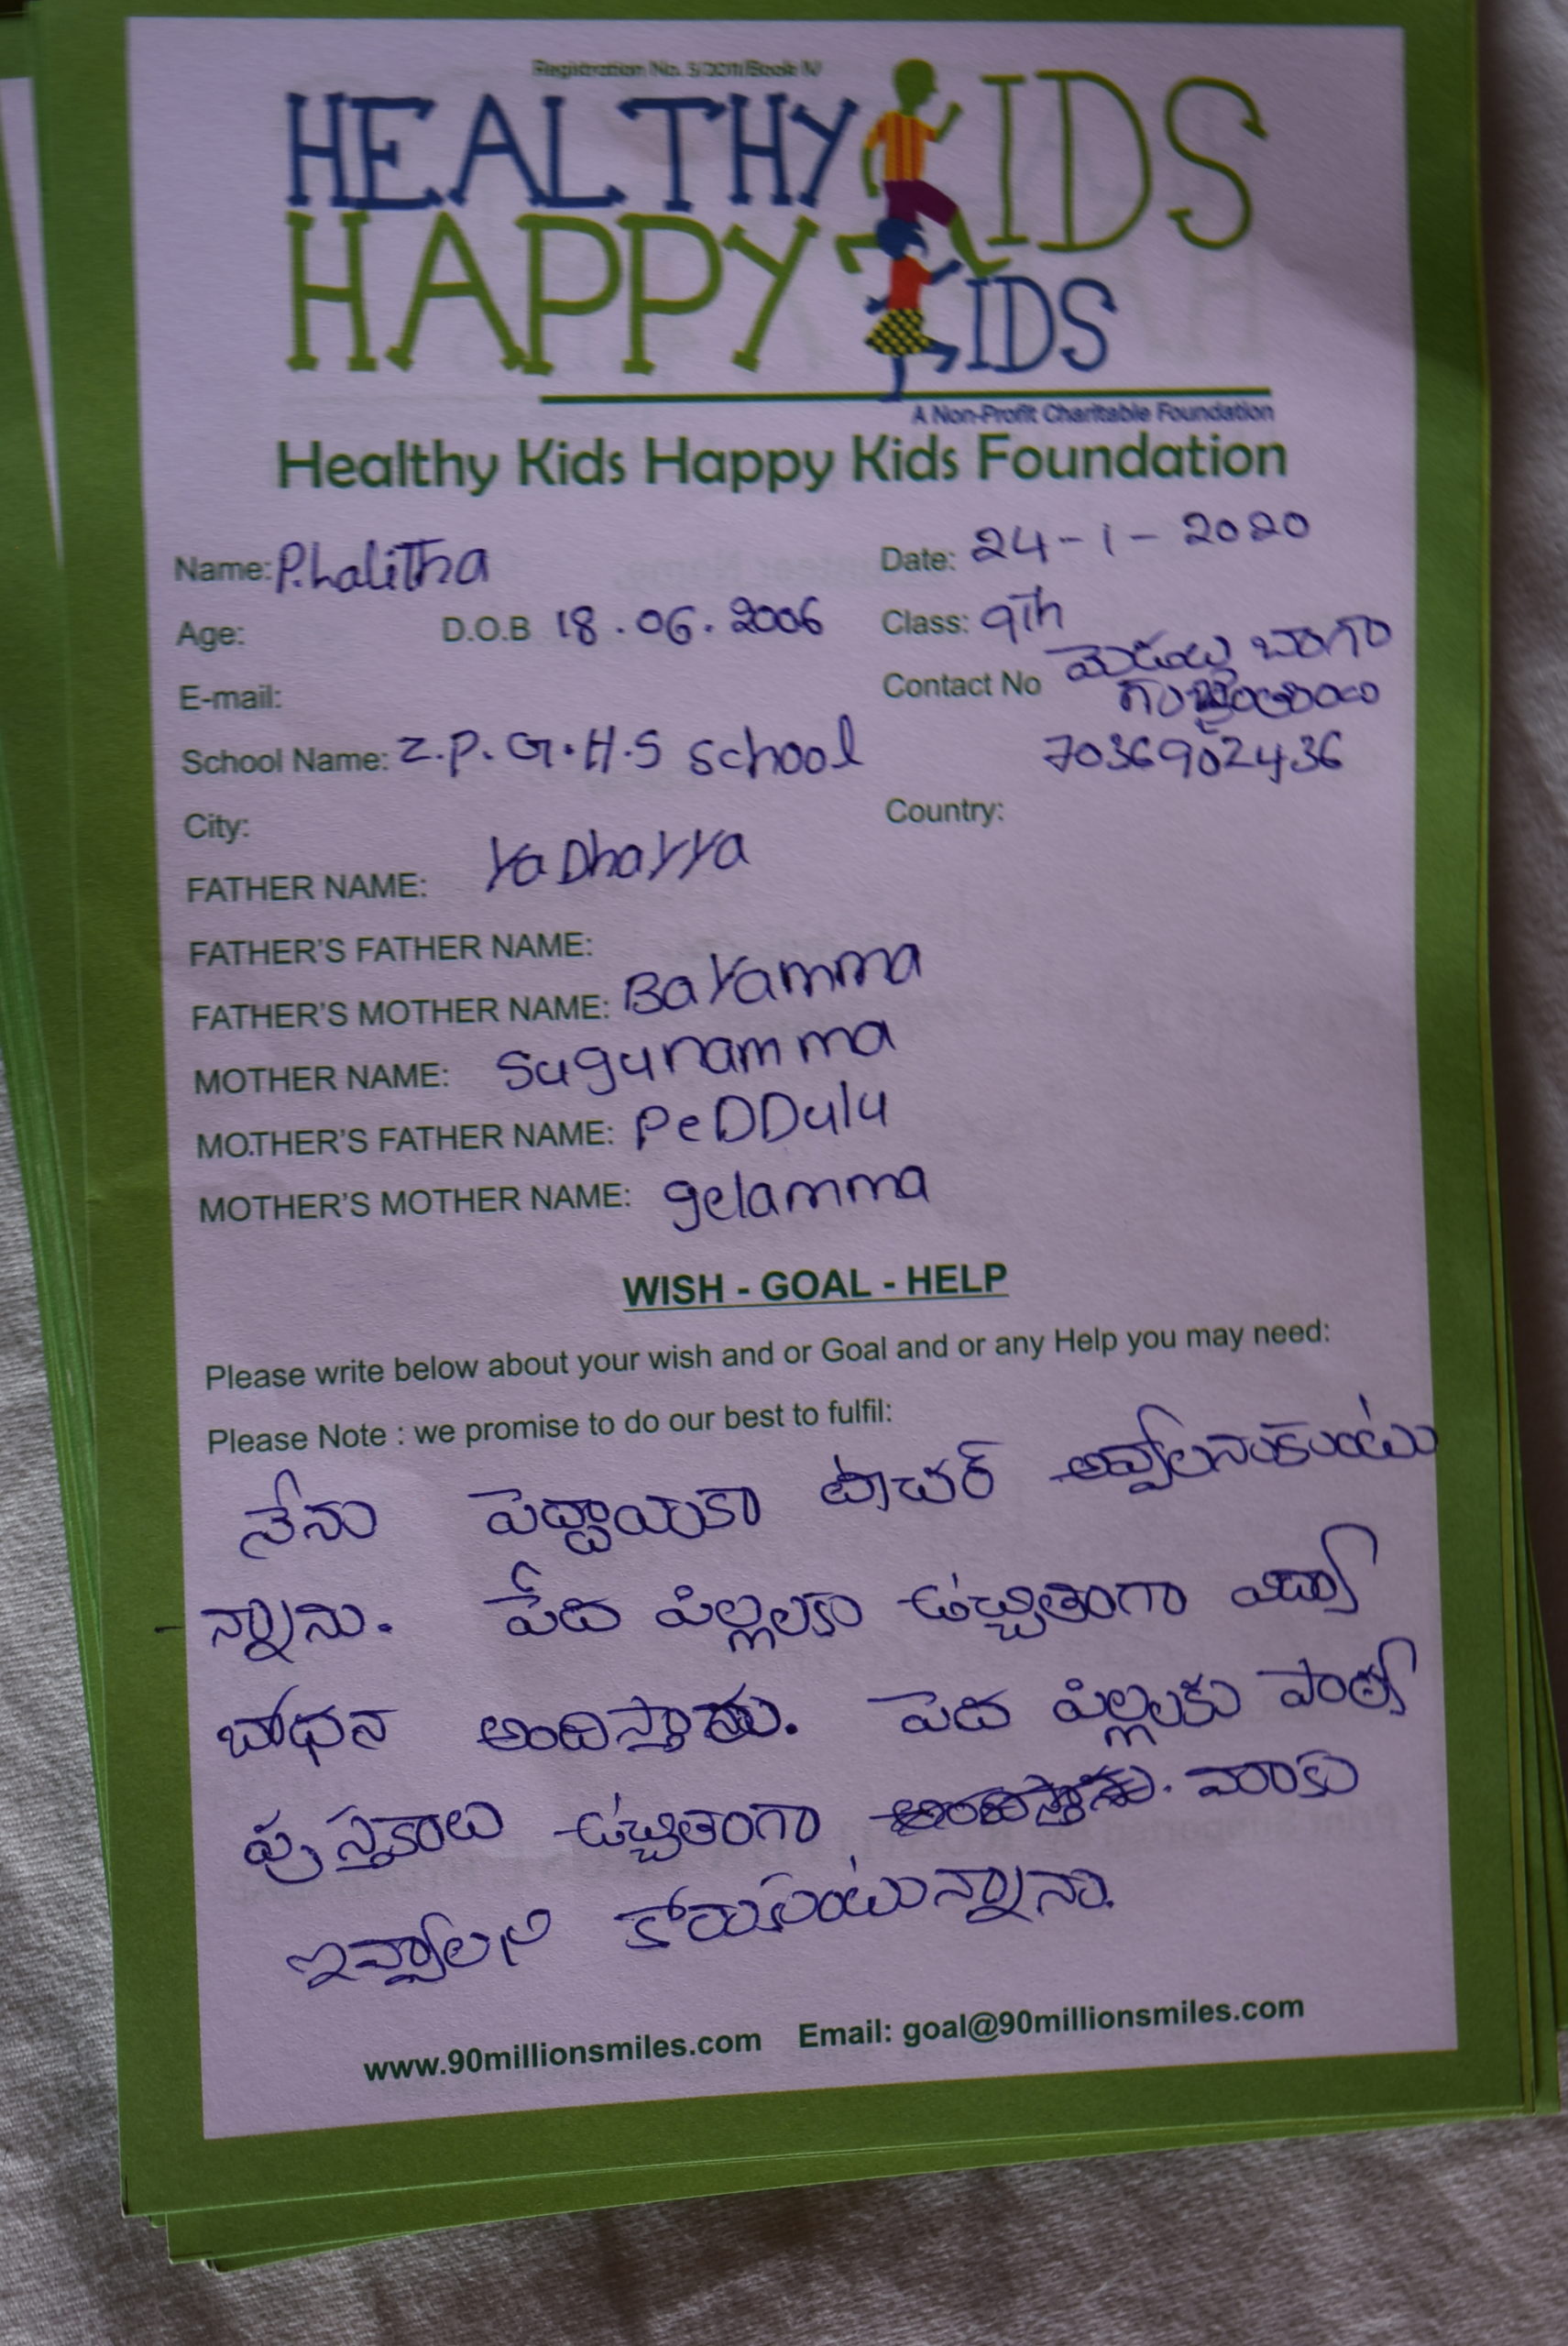 Registration No. 5/2011/Book IV
HEALTHY KIDS
HAPPY KIDS
A Non-Profit Charitable Foundation
Healthy Kids Happy Kids Foundation
Name: P.LaliTha Date: 24-1-2020
Age: D.O.B 18.06.2006 Class: 9Th
E-mail: Contact No
School Name: Z.P.G.H.S School 7036902436
City: Country:
FATHER NAME: YaDhayya
FATHER'S FATHER NAME:
FATHER'S MOTHER NAME: Bayamma
MOTHER NAME: Sugunamma
MO.THER'S FATHER NAME: PeDDulu
MOTHER'S MOTHER NAME: gelamma
WISH - GOAL - HELP
Please write below about your wish and or Goal and or any Help you may need:
Please Note : we promise to do our best to fulfil:
నేను పెద్దాయకా టీచర్ అవ్వాలనుకుంటు
న్నాను. పేద పిల్లలకు ఉచ్చితంగా విద్యా
బోధన అందిస్తాను. పెద పిల్లుకు పాఠ్య
పుస్తకాలు ఉచ్చితంగా మాకు
ఇవ్వాలని కోరుకుంటున్నాను.
www.90millionsmiles.com Email: goal@90millionsmiles.com